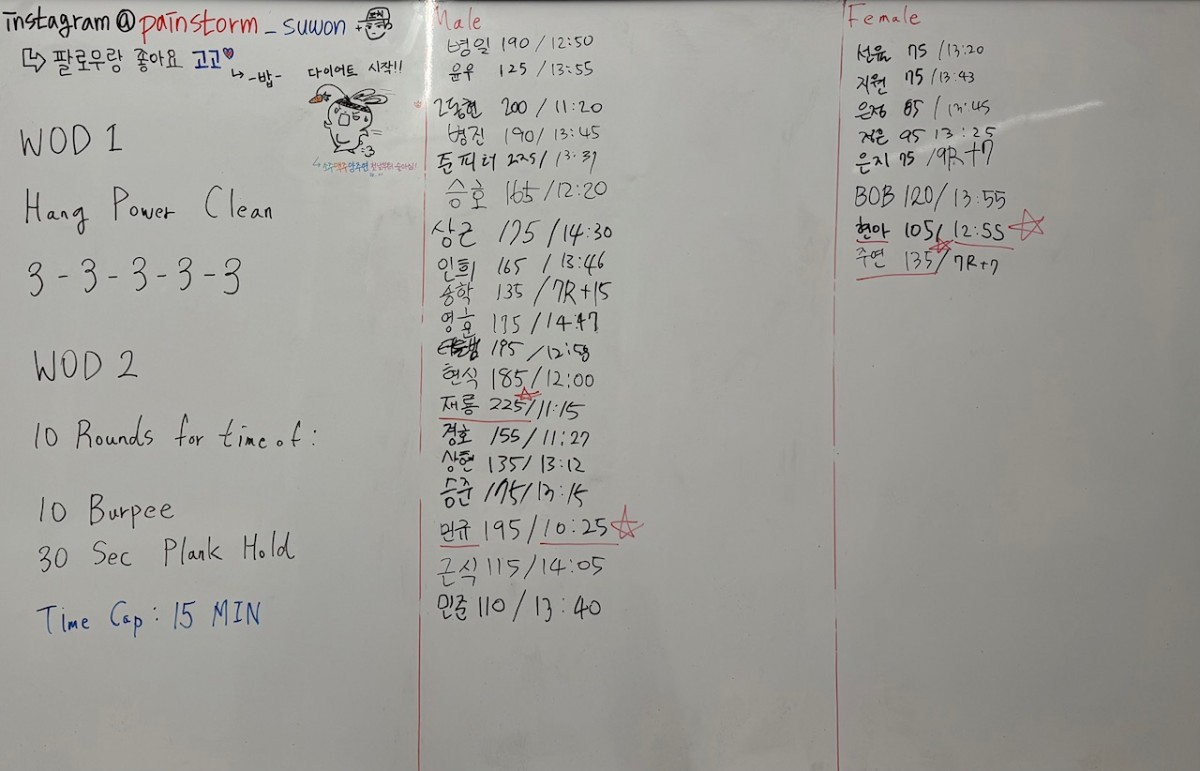 instagram@painstorm_suwon
↳ 팔로우랑 좋아요 고고♥
↳ -밥-
다이어트 시작!!
WOD 1
Hang Power Clean
3-3-3-3-3
WOD 2
10 Rounds for time of:
10 Burpee
30 Sec Plank Hold
Time Cap: 15 MIN
Male
병일 190/12:50
윤우 125/13:55
200/11:20
병진 190/13:45
돈피터 225/13:37
승호 165/12:20
상근 175/14:30
인희 165/13:46
송학 135/7R+15
영훈 175/14:47
195/12:58
현식 185/12:00
재룡 225/11:15
경호 155/11:27
상현 135/13:12
승준 175/13:15
민규 195/10:25
근식 115/14:05
민준 110/13:40
Female
선율 75/13:20
지원 75/13:43
은정 85/13:45
정은 95 13:25
은지 75/9R+7
BOB 120/13:55
현아 105/12:55
주연 135/7R+7